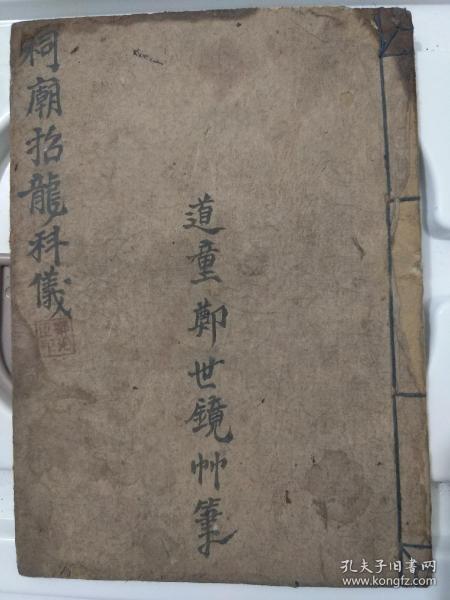 祠廟招龍科儀
道童鄭世鏡艸筆
孔夫子旧书网
www.kongfz.com